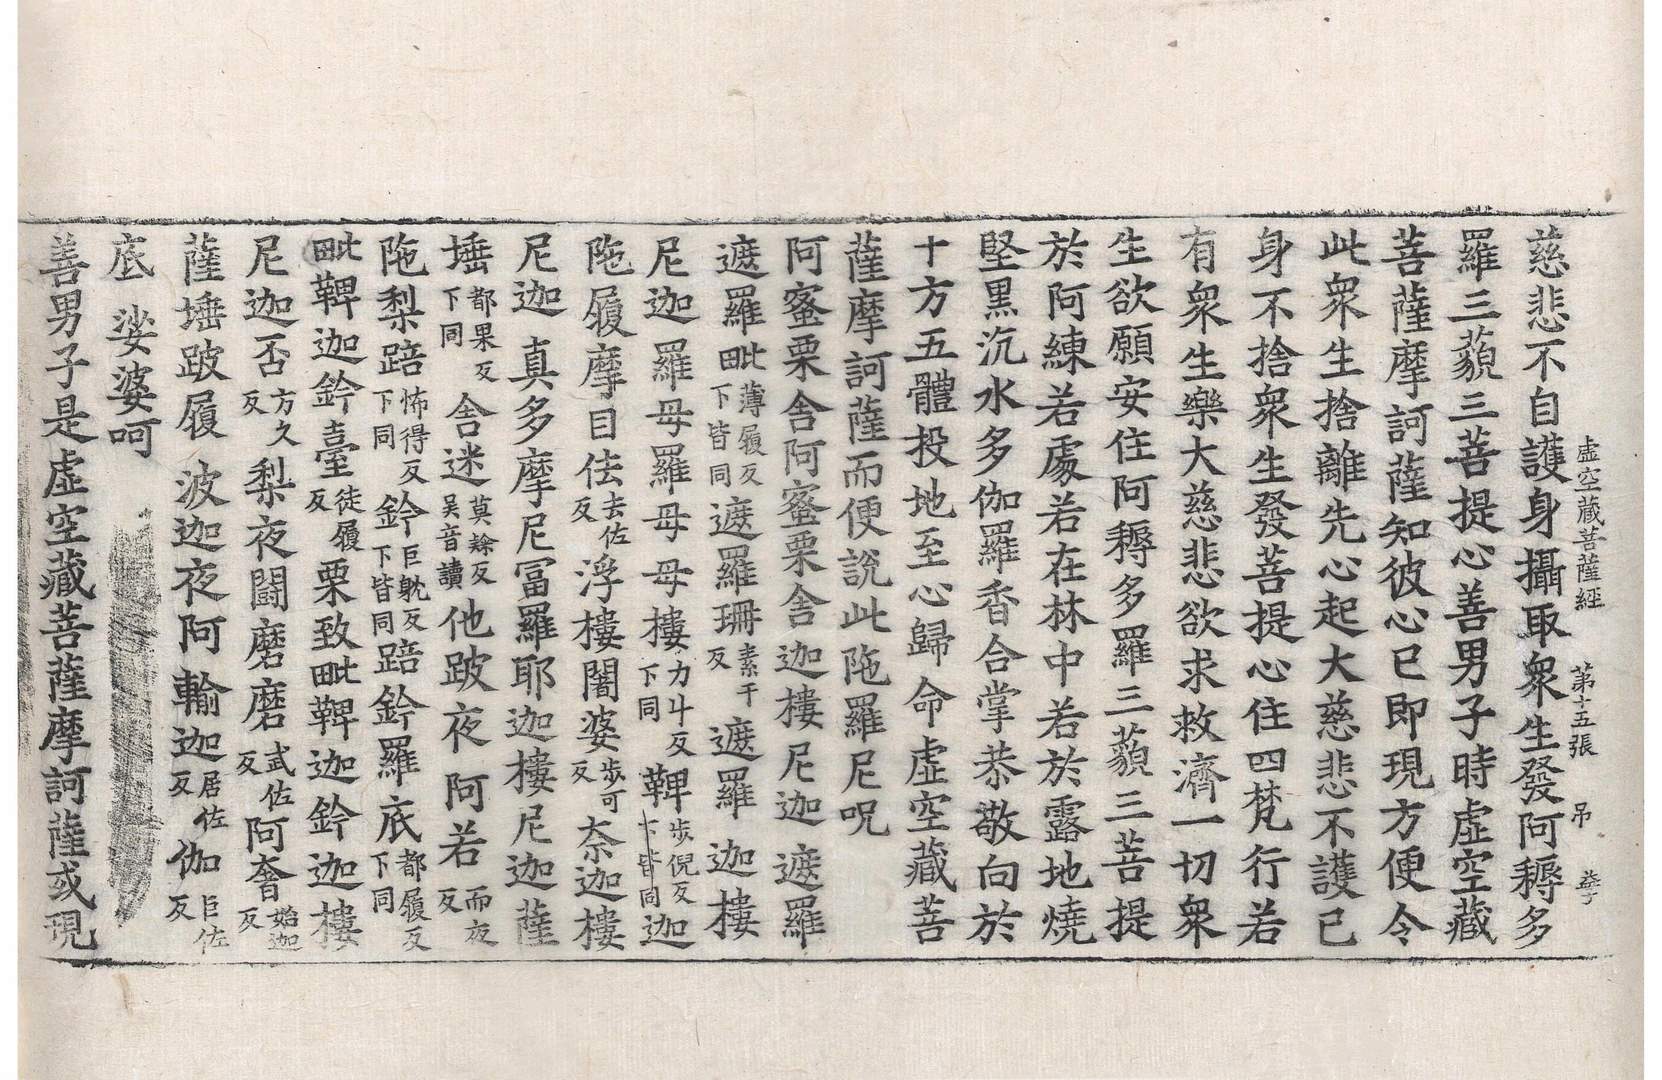 虛空藏菩薩經 第十五張 吊
慈悲不自護身攝取衆生發阿耨多
羅三藐三菩提心善男子時虛空藏
菩薩摩訶薩知彼心已即現方便令
此衆生捨離先心起大慈悲不護已
身不捨衆生發菩提心住四梵行若
有衆生樂大慈悲欲求救濟一切衆
生欲願安住阿耨多羅三藐三菩提
於阿練若處若在林中若於露地燒
堅黑沉水多伽羅香合掌恭敬向於
十方五體投地至心歸命虛空藏菩
薩摩訶薩而便說此陁羅尼呪
阿蜜栗舍阿蜜栗舍迦樓尼迦遮羅
遮羅毗薄履反下皆同遮羅珊素干反遮羅迦樓
尼迦羅毋羅毋毋樓力斗反下同鞞步倪反下皆同迦
陁履摩目佉去佐反浮樓闍婆步可反柰迦樓
尼迦真多摩尼冨羅耶迦樓尼迦薩
埵都果反下同舍迷莫隸反吳音讀他跛夜阿若而夜反
陁梨踣怖得反下同鈐巨躭反下皆同踣鈐羅底都履反下同
毗鞞迦鈐臺徒履反栗致毗鞞迦鈐迦樓
尼迦否方久反梨夜闘磨磨武佐反阿奢始迦反
薩埵跛履波迦夜阿輸迦居佐反伽巨佐反
底娑婆呵
善男子是虛空藏菩薩摩訶薩或現